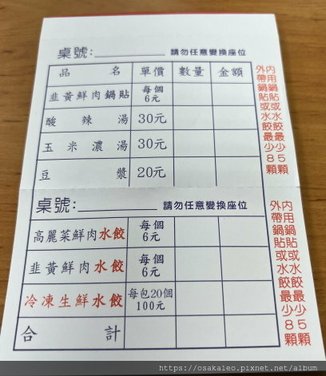 桌號: 請勿任意變換座位
品名 單價 數量 金額
韭黃鮮肉鍋貼 每個6元
酸辣湯 30元
玉米濃湯 30元
豆漿 20元
內用鍋貼或水餃最少5顆
外帶鍋貼或水餃最少8顆
桌號: 請勿任意變換座位
高麗菜鮮肉水餃 每個6元
韭黃鮮肉水餃 每個6元
冷凍生鮮水餃 每包20個100元
合計
內用鍋貼或水餃最少5顆
外帶鍋貼或水餃最少8顆
https://osakaleo.pixnet.net/album